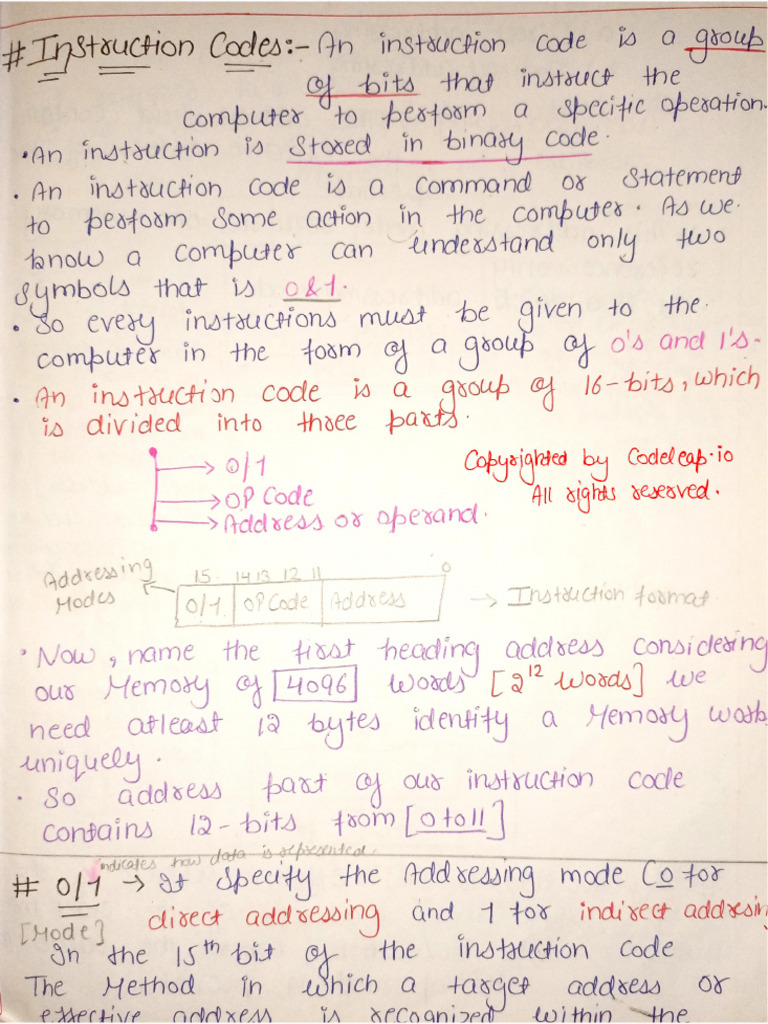 # Instruction Codes:- An instruction code is a group
of bits that instruct the
computer to perform a specific operation.
• An instruction is stored in binary code.
• An instruction code is a command or statement
to perform some action in the computer. As we
know a computer can understand only two
symbols that is 0 & 1.
• So every instructions must be given to the
computer in the form of a group of 0's and 1's.
• An instruction code is a group of 16-bits, which
is divided into three parts.
→ 0/1
→ OP Code
→ Address or operand.
Copyrighted by Codeleap.io
All rights reserved.
Addressing
Modes
15. 14 13 12 11 0
0/1 OP Code Address → Instruction format
• Now, name the first heading address considering
our Memory of 4096 words [2^12 words] we
need atleast 12 bytes identify a Memory
uniquely.
• So address part of our instruction code
contains 12-bits from [0 to 11]
indicates how data is represented.
# 0/1 → It specify the Addressing mode (0 for
[Mode] direct addressing and 1 for indirect addressin
In the 15th bit of the instruction code
The Method in which a target address or
effective address is recognized within the